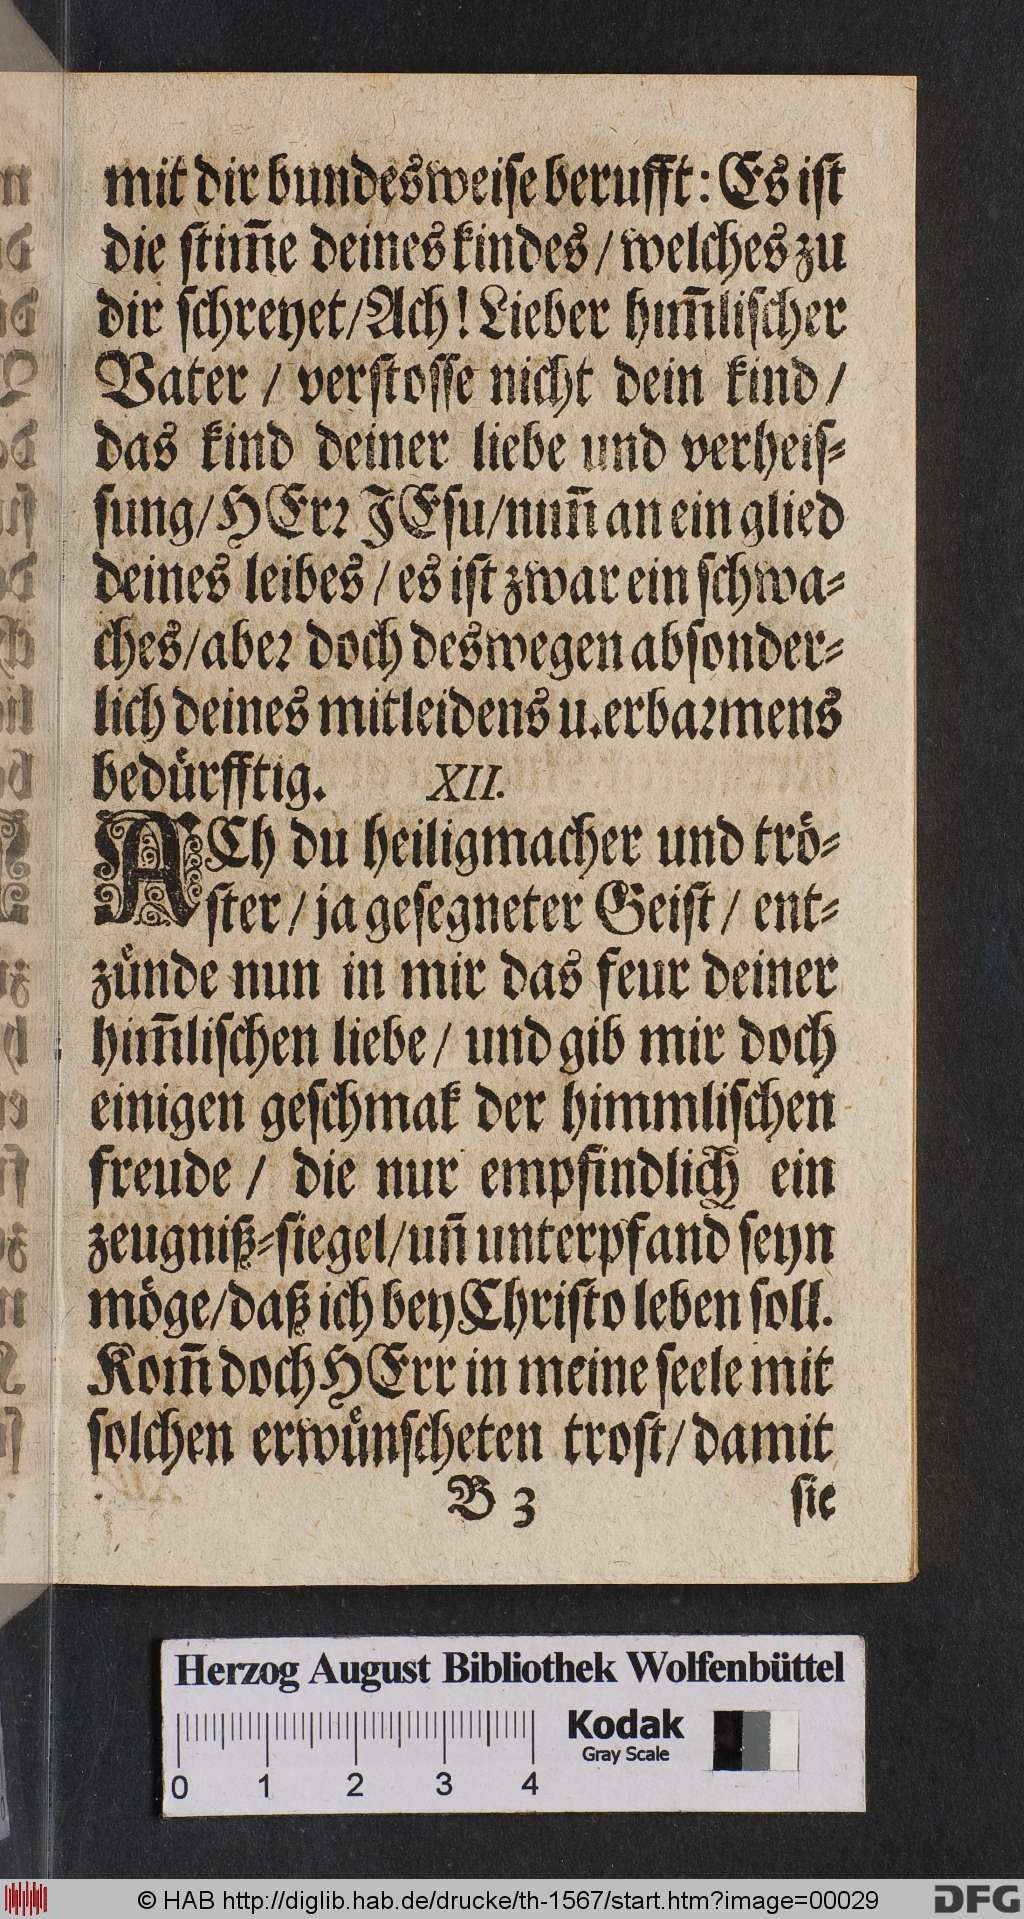 mit dir bundesweise berufft: Es ist
die stim̃e deines kindes / welches zu
dir schreyet/Ach! Lieber him̃lischer
Vater / verstosse nicht dein kind /
das kind deiner liebe und verheis-
sung/HErꝛ JEsu/nim̃ an ein glied
deines leibes / es ist zwar ein schwa-
ches/abeꝛ doch deswegen absonder-
lich deines mitleidens u.erbaꝛmens
bedürfftig. XII.
ACh du heiligmacher und trö-
ster / ja gesegneter Geist / ent-
zünde nun in mir das feur deiner
him̃lischen liebe / und gib mir doch
einigen geschmak der himmlischen
freude / die nur empfindlich ein
zeugniß-siegel/uñ unterpfand seyn
möge/daß ich bey Christo leben soll.
Kom̃ doch HErr in meine seele mit
solchen erwünscheten trost/damit
B 3 sie
Herzog August Bibliothek Wolfenbüttel
Kodak
Gray Scale
0 1 2 3 4
© HAB http://diglib.hab.de/drucke/th-1567/start.htm?image=00029
DFG